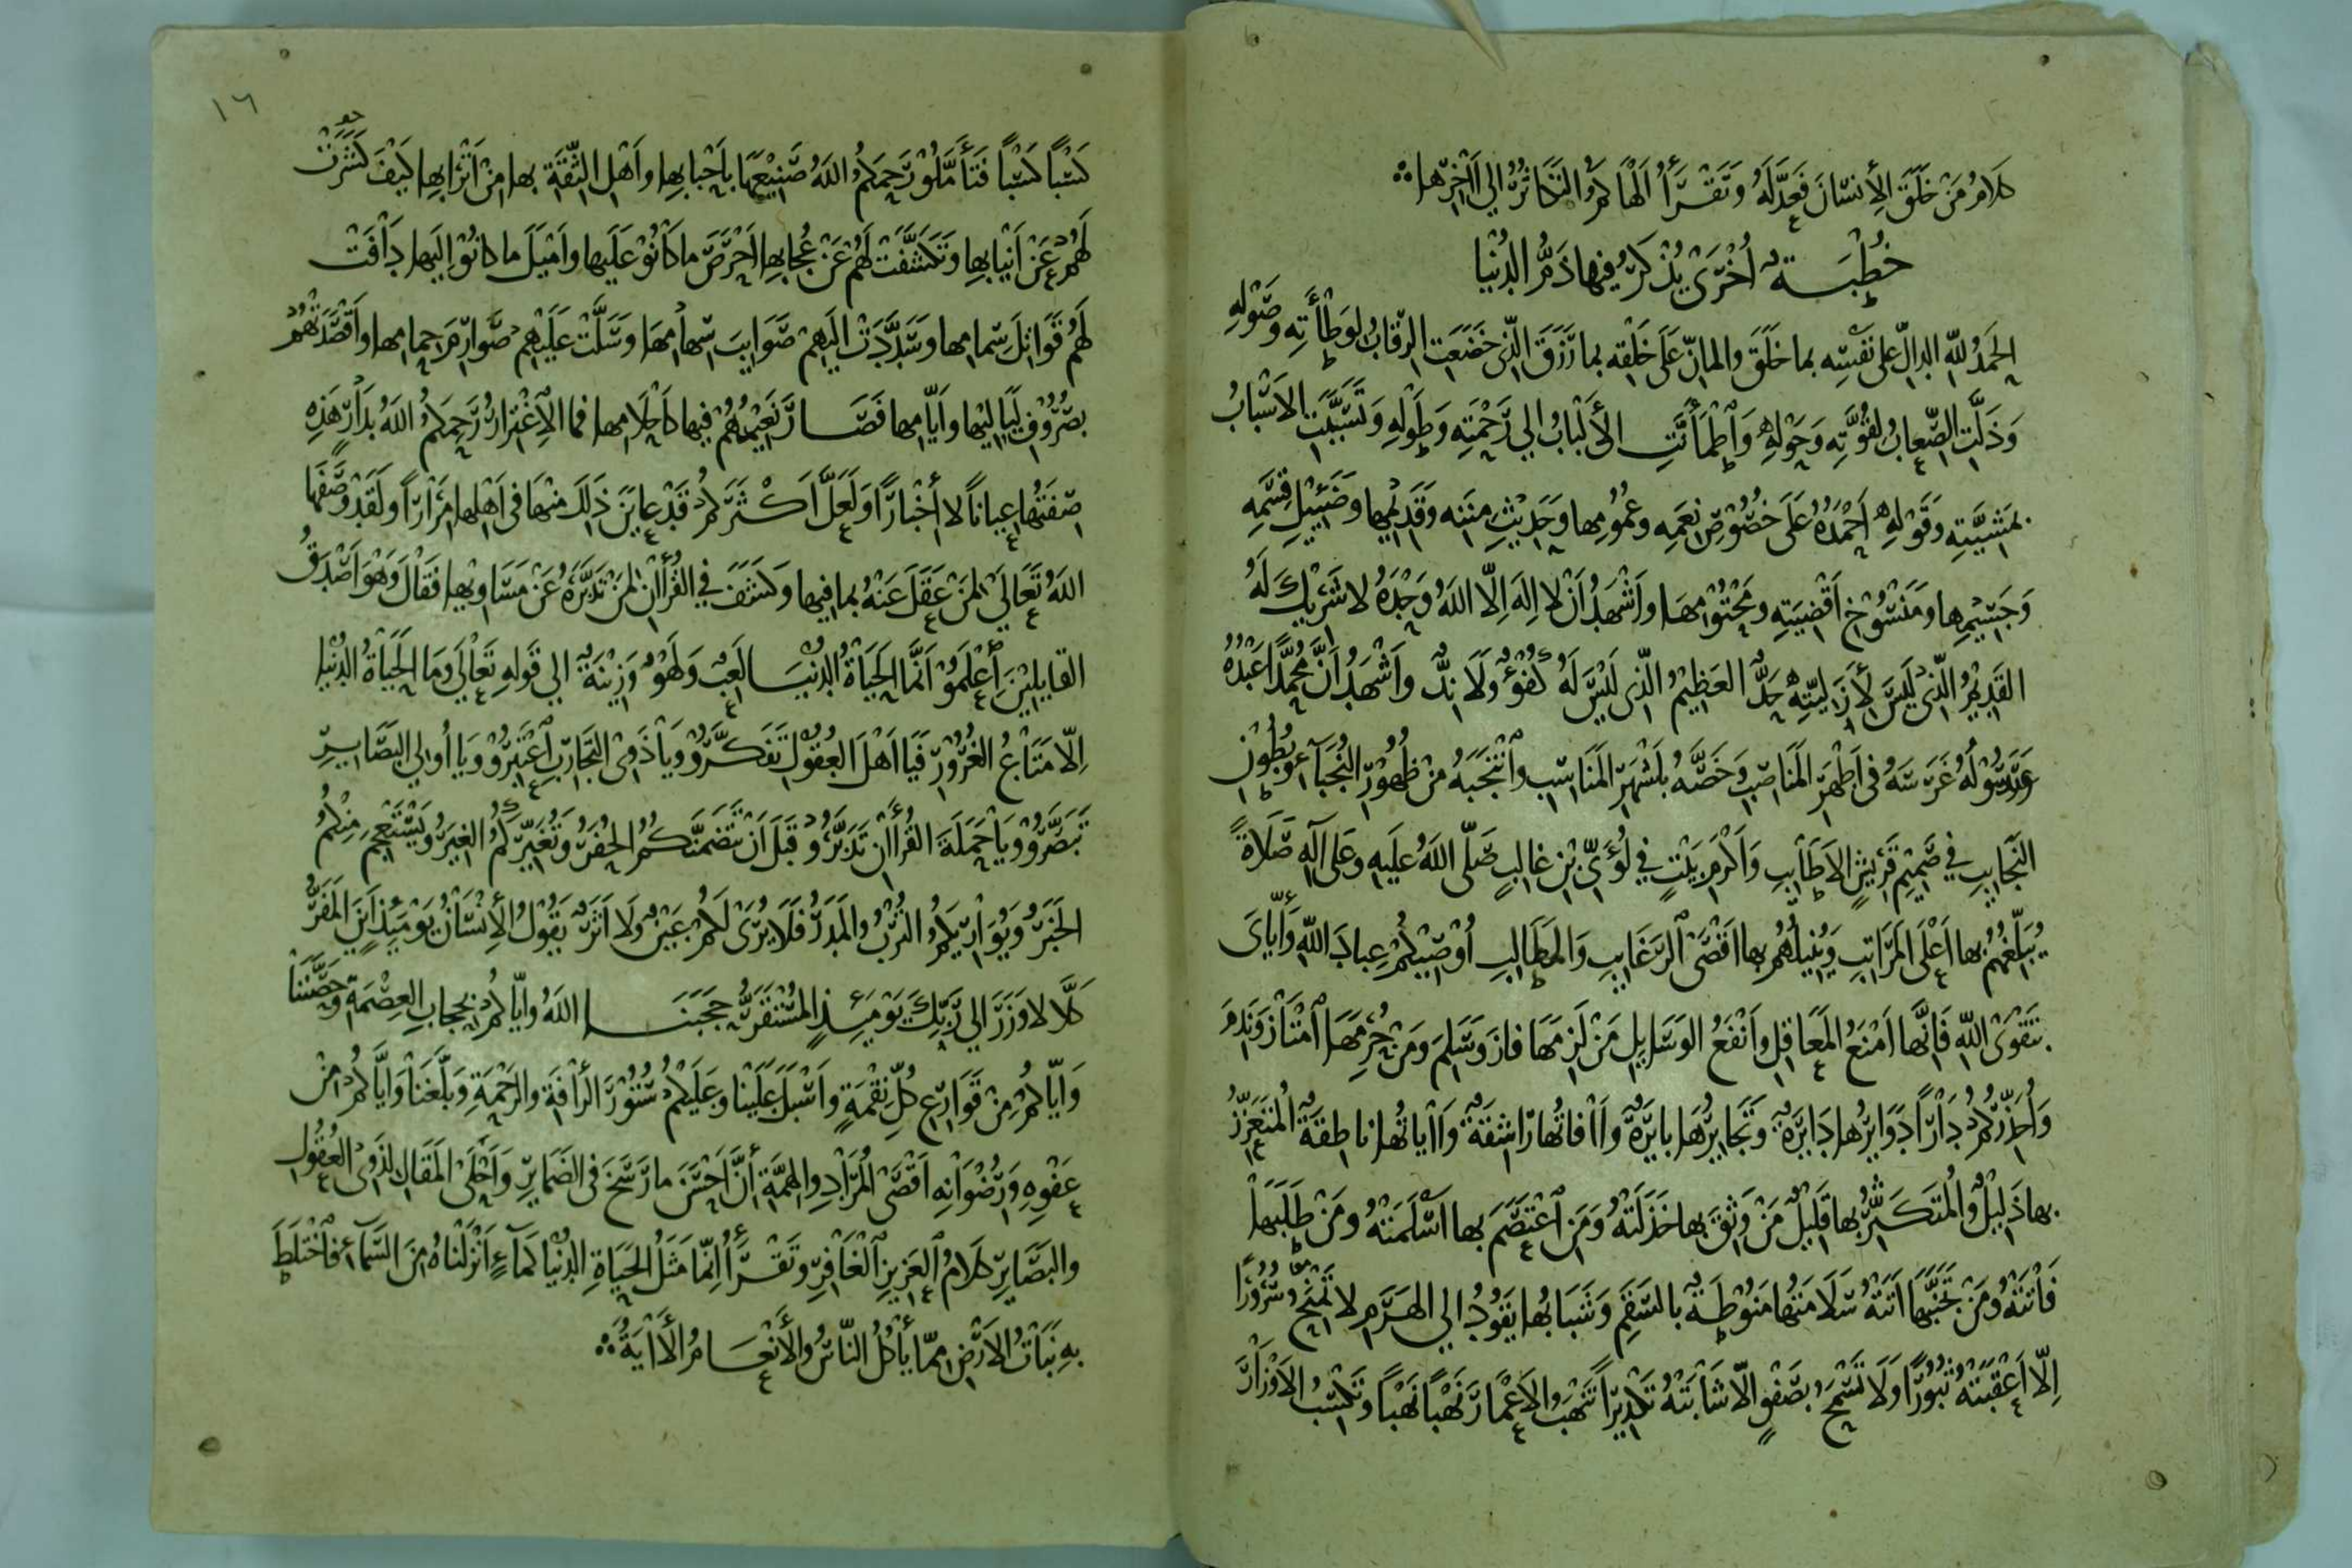 كَلَامُ مَنْ خَلَقَ الْأِنسَانَ فَعَدَّلَهُ وَتَقْرَأُ أَلْهَاكُمُ التَّكَاثُرُ إِلي آخِرِها
خُطْبَةٌ أُخْرَى يُذْكَرُ فِيها ذَمُّ الدُنْيَا
الحَمدُ للهِ الدالِّ على نَفْسِه بما خَلَقَ والمانِّ عَلَى خَلْقِه بما رَزَقَ الَّذِى خَضَعَتِ الرِقابُ لِوَطْأَتِه وصَوْلِهِ
وَذَلَّتِ الصِّعابُ لِقُوَّتِه وَحَوْلِهِ وَاطْمَأَنَّتِ الأَلْبَابُ إِلي رَحْمَتِه وَطَوْلِهِ وَتَسَبَّبَتِ الأَسْبَابُ
بمَشِيَّتِهِ وَقَوْلِهِ أَحْمَدُهُ عَلَى خُصُوصِ نِعَمِه وعُمُومِها وَحَدِيْثِ مِنَنِه وَقَدِيمِها وضَئِيْلِ قِسَمِهِ
وَجَسِيْمِها ومَنْسُوْخِ أَقْضِيَتِهِ ومَحْتُوْمِهَا وأَشْهَدُ أَنْ لا إِلَهَ إِلَّا اللهُ وَحْدَهُ لا شَرِيْكَ لَهُ
القَدِيْمُ الَّذِى لَيْسَ لأَزَلِيَّتِهِ حَدٌّ العَظِيْمُ الَّذِى لَيْسَ لَهُ كُفُؤٌ وَلَا نِدٌّ وأَشْهَدُ أَنَّ مُحَمَّدًا عَبْدُهُ
وَرَسُوْلُهُ غَرَسَهُ فى أَطْهَرِ المَنَاصِبِ وَخَصَّهُ بأَشْهَرِ المَنَاسِبِ وانْتَجَبَهُ مِنْ ظُهُوْرِ النُجَبَآءِ وَبُطُوْنِ
النَجَايِبِ فِي صَمِيْمِ قُرَيْشٍ الأَطَايِبِ وَأَكْرَمِ بَيْتٍ فِي لُؤَيِّ بْنِ غالِبٍ صَلَّى اللهُ علَيهِ وعَلَى آلِهِ صَلَاةً
يُبَلِّغُهُمُ بها أَعْلَى المَرَاتِبِ وَيُنِيلُهُمْ بها أَقْصَى الرَغَايِبِ وَالمَطَالِبِ أُوْصِيْكُمْ عِبادَ اللهِ وَإِيَّاىَ
بتَقْوَى اللهِ فَإِنَّها أَمْنَعُ المَعَاقِلِ وأَنْفَعُ الوَسَايِلِ مَنْ لَزِمَهَا فازَ وَسَلِمَ ومَنْ حُرِمَهَا امْتَازَ وَنَدِمَ
وَأُحَذِّرُكُمْ دَارًا دَوَايِرُها دَايِرَةٌ وَتَجَايِرُهَا بايِرَةٌ وَآفَاتُها رَاشِقَةٌ وَآيَاتُها ناطِقَةٌ المُتَعَزِّزُ
بها ذَلِيْلٌ والمُتَكَثِّرُ بها قَلِيْلٌ مَنْ وَثِقَ بها خَذَلَتْهُ وَمَنِ اعْتَصَمَ بها أَسْلَمَتْهُ ومَنْ طَلَبَهَا
فَاتَتْهُ ومَنْ تَجَنَّبَهَا أَتَتْهُ سَلَامَتُها مَنُوْطَةٌ بالسَقَمِ وَشَبَابُها يَقُوْدُ إِلي الهَرَمِ لا تَمْنَحُ سُرُوْرًا
إِلّا أَعْقَبَتْهُ ثُبُوْرًا وَلَا تَسْمَحُ بصَفْوٍ إِلَّا شَابَتْهُ تَكْدِيْرًا تَنْهَبُ الأَعْمَارَ نَهْبًا نَهْبًا وَتُكْسِبُ الأَوْزَارَ
١٦
كَسْبًا كَسْبًا فَتَأَمَّلُوْ رَحِمَكُمُ اللهُ صَنِيْعَهَا بأَحْبابِها وأَهْلِ الثِّقَةِ بها مِنْ أَتْرَابِها كَيْفَ كَشَرَتْ
لَهُمْ عَنْ أَنْيَابِها وَتَكَشَّفَتْ لَهُمْ عَنْ عُجَابِها أَحْرَصَ ما كَانُوْ عَلَيها وأَمْيَلَ ما كانُوْ إِلَيها دَافَتْ
لَهُمْ قَوَاتِلَ سِمامِها وسَدَّدَتْ إِلَيهِمْ صَوَايِبَ سِهامِهَا وسَلَّتْ عَلَيْهِمْ صَوَارِمَ حِمامِها وأَقْصَدَتْهُمْ
بصُرُوْفِ لَيَالِيْها وأَيَّامِها فَصَارَ نَعِيْمُهُمْ فِيها كَأَحْلَامِها فما الِاغْتِرَارُ رَحِمَكُمُ اللهُ بدَارٍ هَذِهِ
صِفَتُها عِيانًا لا أَخْبَارًا وَلَعَلَّ أَكْثَرَكُمْ قَدْ عايَنَ ذَلِكَ مِنْهَا فى أَهْلِها مِرَارًا ولَقَدْ وَصَفَها
اللهُ تَعَالَى لمَنْ عَقَلَ عَنْهُ بما فِيها وَكَشَفَ فِي القُرْأٓنِ لمَنْ تَدَبَّرَهُ عَنْ مَسَاوِيها فَقَالَ وَهْوَ أَصْدَقُ
القايِلِيْنَ اعْلَمُوْ أَنَّمَا الحَيَاةُ الدُنْيَا لَعِبٌ وَلَهْوٌ وَزِيْنَةٌ إِلي قَولِهِ تَعَالَى وَمَا الحَيَاةُ الدُنْيَا
إِلّا مَتَاعُ الغُرُوْرِ فَيَا أَهْلَ العُقُوْلِ تَفَكَّرُوْ وَيَا ذَوِى التَجَارِبِ اعْتَبِرُوْ وَيَا أُولي البَصَايِرِ
تَبَصَّرُوْ وَيَا حَمَلَةَ القُرْأٓنِ تَدَبَّرُوْ قَبْلَ أَنْ تَتَضَمَّنَكُمُ الحُفَرُ وَتُغَيِّرَكُمُ الغِيَرُ ويَسْتَعْجِمَ مِنْكُمُ
الخَبَرُ وَيُوَارِيَكُمُ التُرْبُ والمَدَرُ فَلَا يُرَى لَكُمْ عَيْنٌ وَلَا أَثَرٌ يَقُوْلُ الأِنْسَانُ يَوْمَئِذٍ أَيْنَ المَفَرُّ
كَلَّا لا وَزَرَ إِلي رَبِّكَ يَوْمَئِذٍ المُسْتَقَرُّ حَجَبَنَا اللهُ وَإِيَّاكُمْ بحِجابِ العِصْمَةِ وَحَصَّنَنَا
وَإِيَّاكُمْ مِنْ قَوَارِعِ كُلِّ نِقْمَةٍ وأَسْبَلَ عَلَيْنا وعَلَيْكُمْ سُتُوْرَ الرَأْفَةِ والرَحْمَةِ وَبَلَّغَنَا وَإِيَّاكُمْ مِنْ
عَفْوِهِ وَرِضْوَانِهِ أَقْصَى المُرَادِ والهِمَّةِ أَنَّ أَحْسَنَ ما رَسَخَ فى الضَمَايِرِ وَأَحْلَى المَقَالِ لذَوِى العُقُوْلِ
والبَصَايِرِ كَلَامُ العَزِيزِ الغَافِرِ وتَقْرَأُ إِنَّما مَثَلُ الحَيَاةِ الدُنْيَا كَمَآءٍ أَنْزَلْناهُ مِنَ السَمَآءِ فَاخْتَلَطَ
بِهِ نَبَاتُ الأَرْضِ مِمَّا يَأْكُلُ النّاسُ والأَنْعَامُ الأٓيَةُ